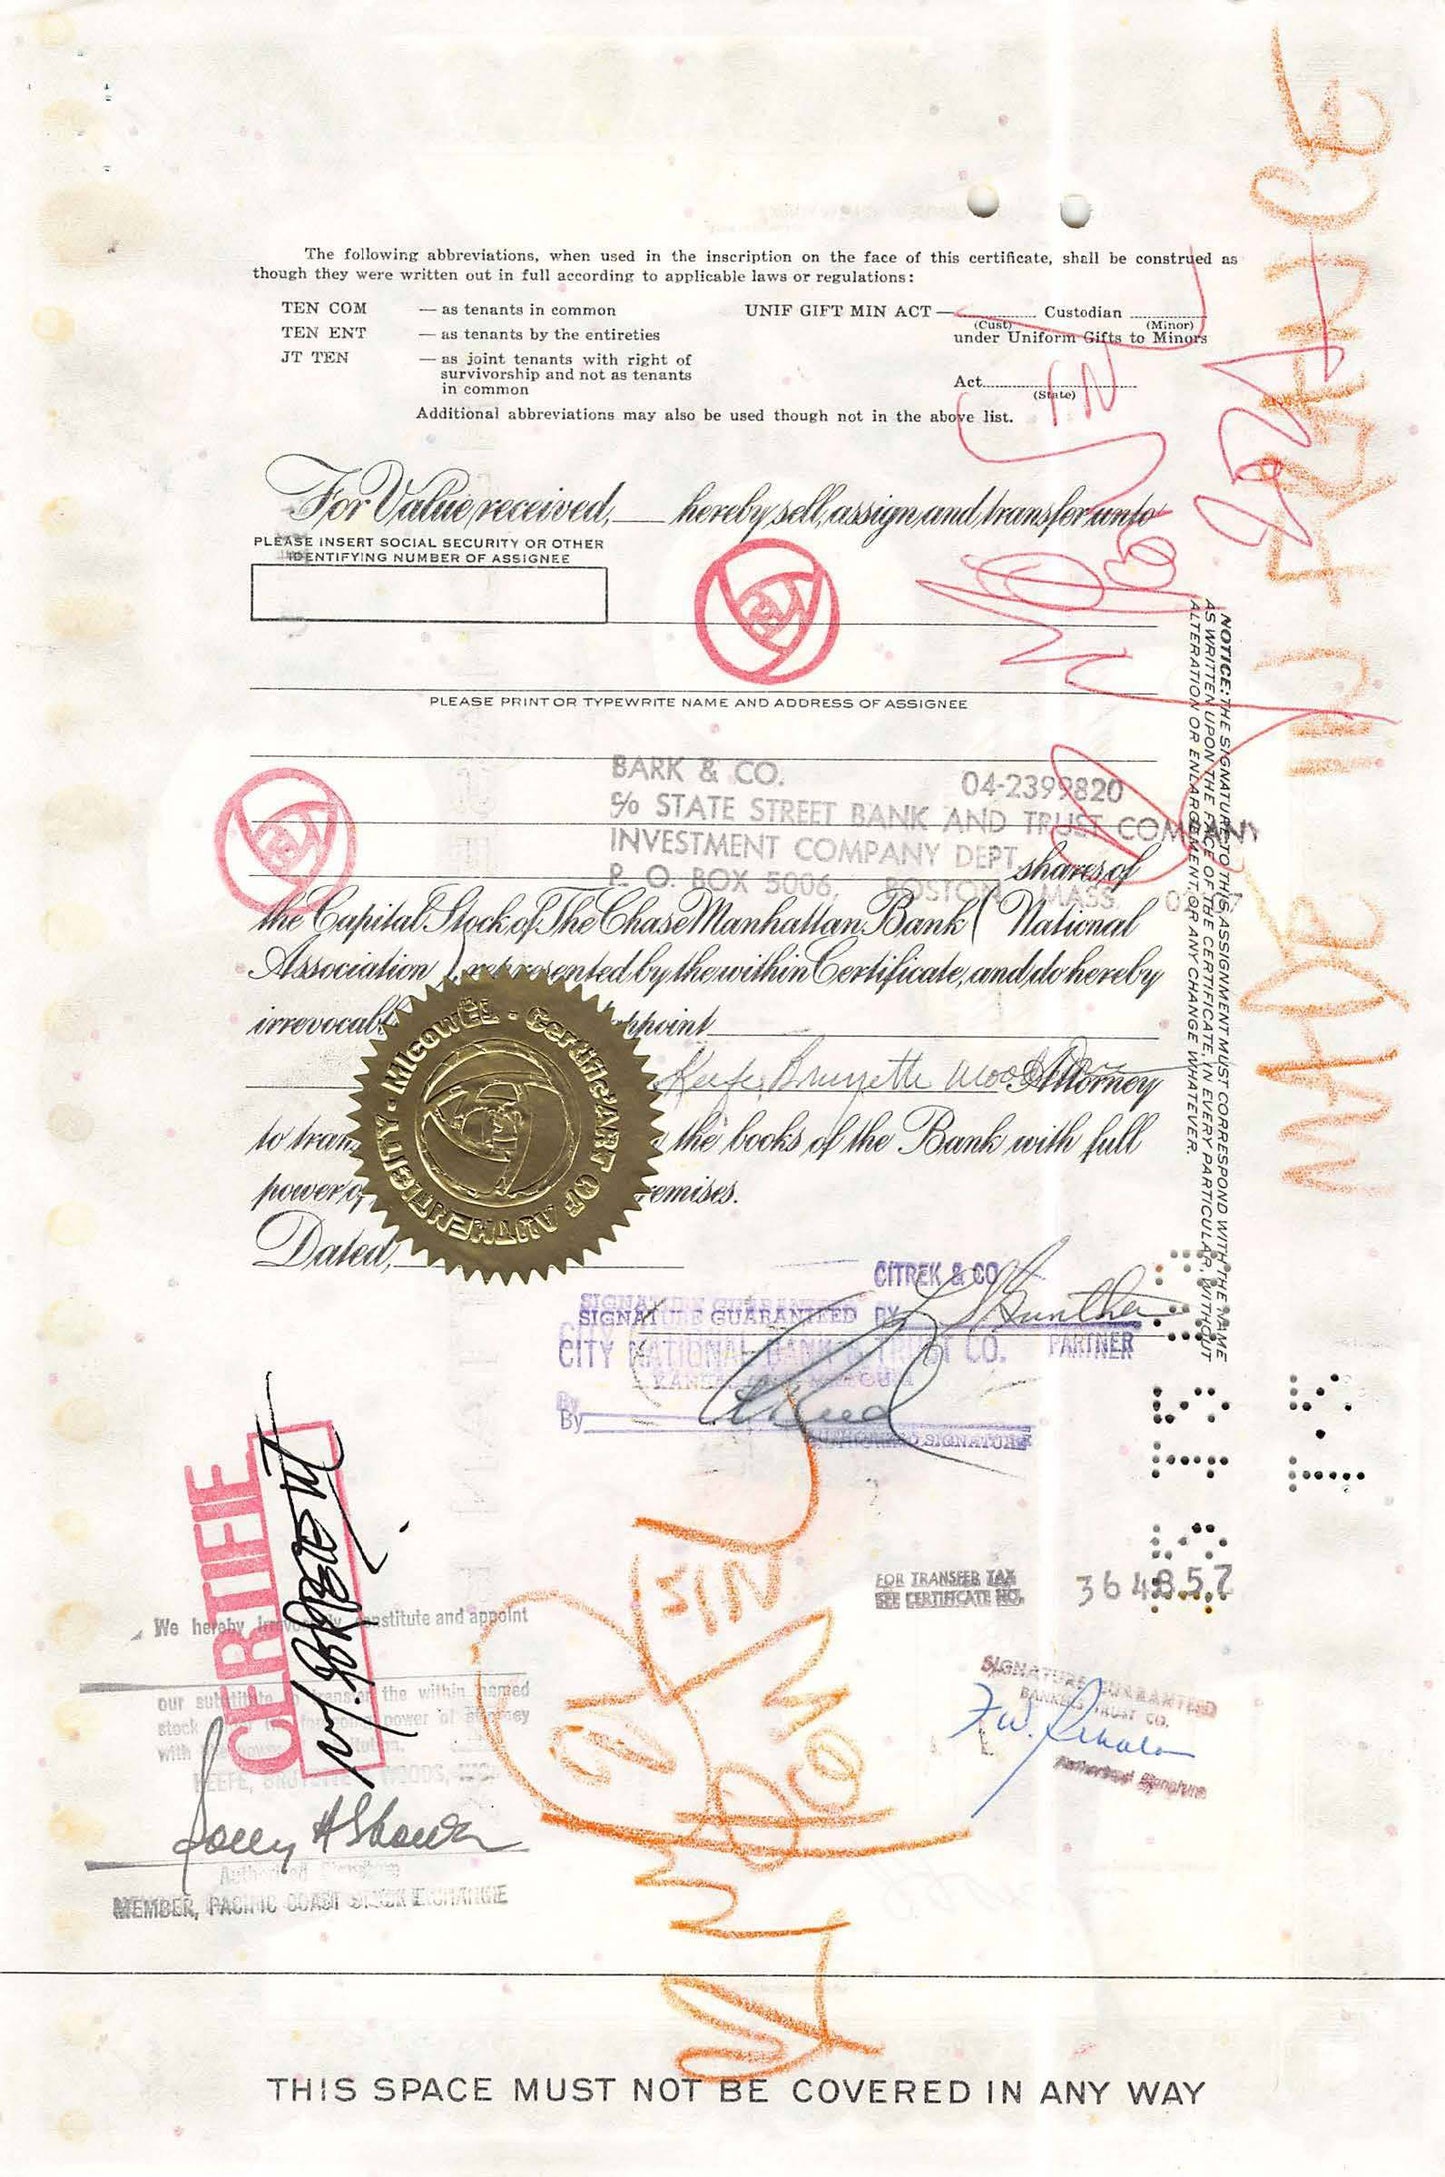 The following abbreviations, when used in the inscription on the face of this certificate, shall be construed as
though they were written out in full according to applicable laws or regulations:
TEN COM — as tenants in common
TEN ENT — as tenants by the entireties
JT TEN — as joint tenants with right of
survivorship and not as tenants
in common
UNIF GIFT MIN ACT — Custodian
(Cust) (Minor)
under Uniform Gifts to Minors
Act
(State)
Additional abbreviations may also be used though not in the above list.
For Value received, hereby sell, assign and transfer unto
PLEASE INSERT SOCIAL SECURITY OR OTHER
IDENTIFYING NUMBER OF ASSIGNEE
PLEASE PRINT OR TYPEWRITE NAME AND ADDRESS OF ASSIGNEE
BARK & CO. 04-2399820
c/o STATE STREET BANK AND TRUST COMPANY
INVESTMENT COMPANY DEPT.
P. O. BOX 5006, BOSTON, MASS.
shares of
the Capital Stock of The Chase Manhattan Bank (National
Association) represented by the within Certificate, and do hereby
irrevocabl ppoint
Keefe, Bruyette Attorney
to tran the books of the Bank with full
power o remises.
Dated,
MICOWËL · Certific'ART OF AUTHENTICITY ·
NOTICE: THE SIGNATURE TO THIS ASSIGNMENT MUST CORRESPOND WITH THE NAME
AS WRITTEN UPON THE FACE OF THE CERTIFICATE, IN EVERY PARTICULAR, WITHOUT
ALTERATION OR ENLARGEMENT, OR ANY CHANGE WHATEVER.
MADE IN FRANCE
2021
CITREK & CO
SIGNATURE GUARANTEED BY
PARTNER
CITY NATIONAL BANK & TRUST CO.
KANSAS CITY, MISSOURI
By
AUTHORIZED SIGNATURE
CERTIFIE
We hereby irrevocably constitute and appoint
our substitute to transfer the within named
stock under the foregoing power of attorney
with
KEEFE, BRUYETTE & WOODS, INC.
Authorized Signature
MEMBER, PACIFIC COAST STOCK EXCHANGE
FOR TRANSFER TAX
SEE CERTIFICATE NO. 364857
SIGNATURE GUARANTEED
BANKERS TRUST CO.
Authorized Signature
THIS SPACE MUST NOT BE COVERED IN ANY WAY